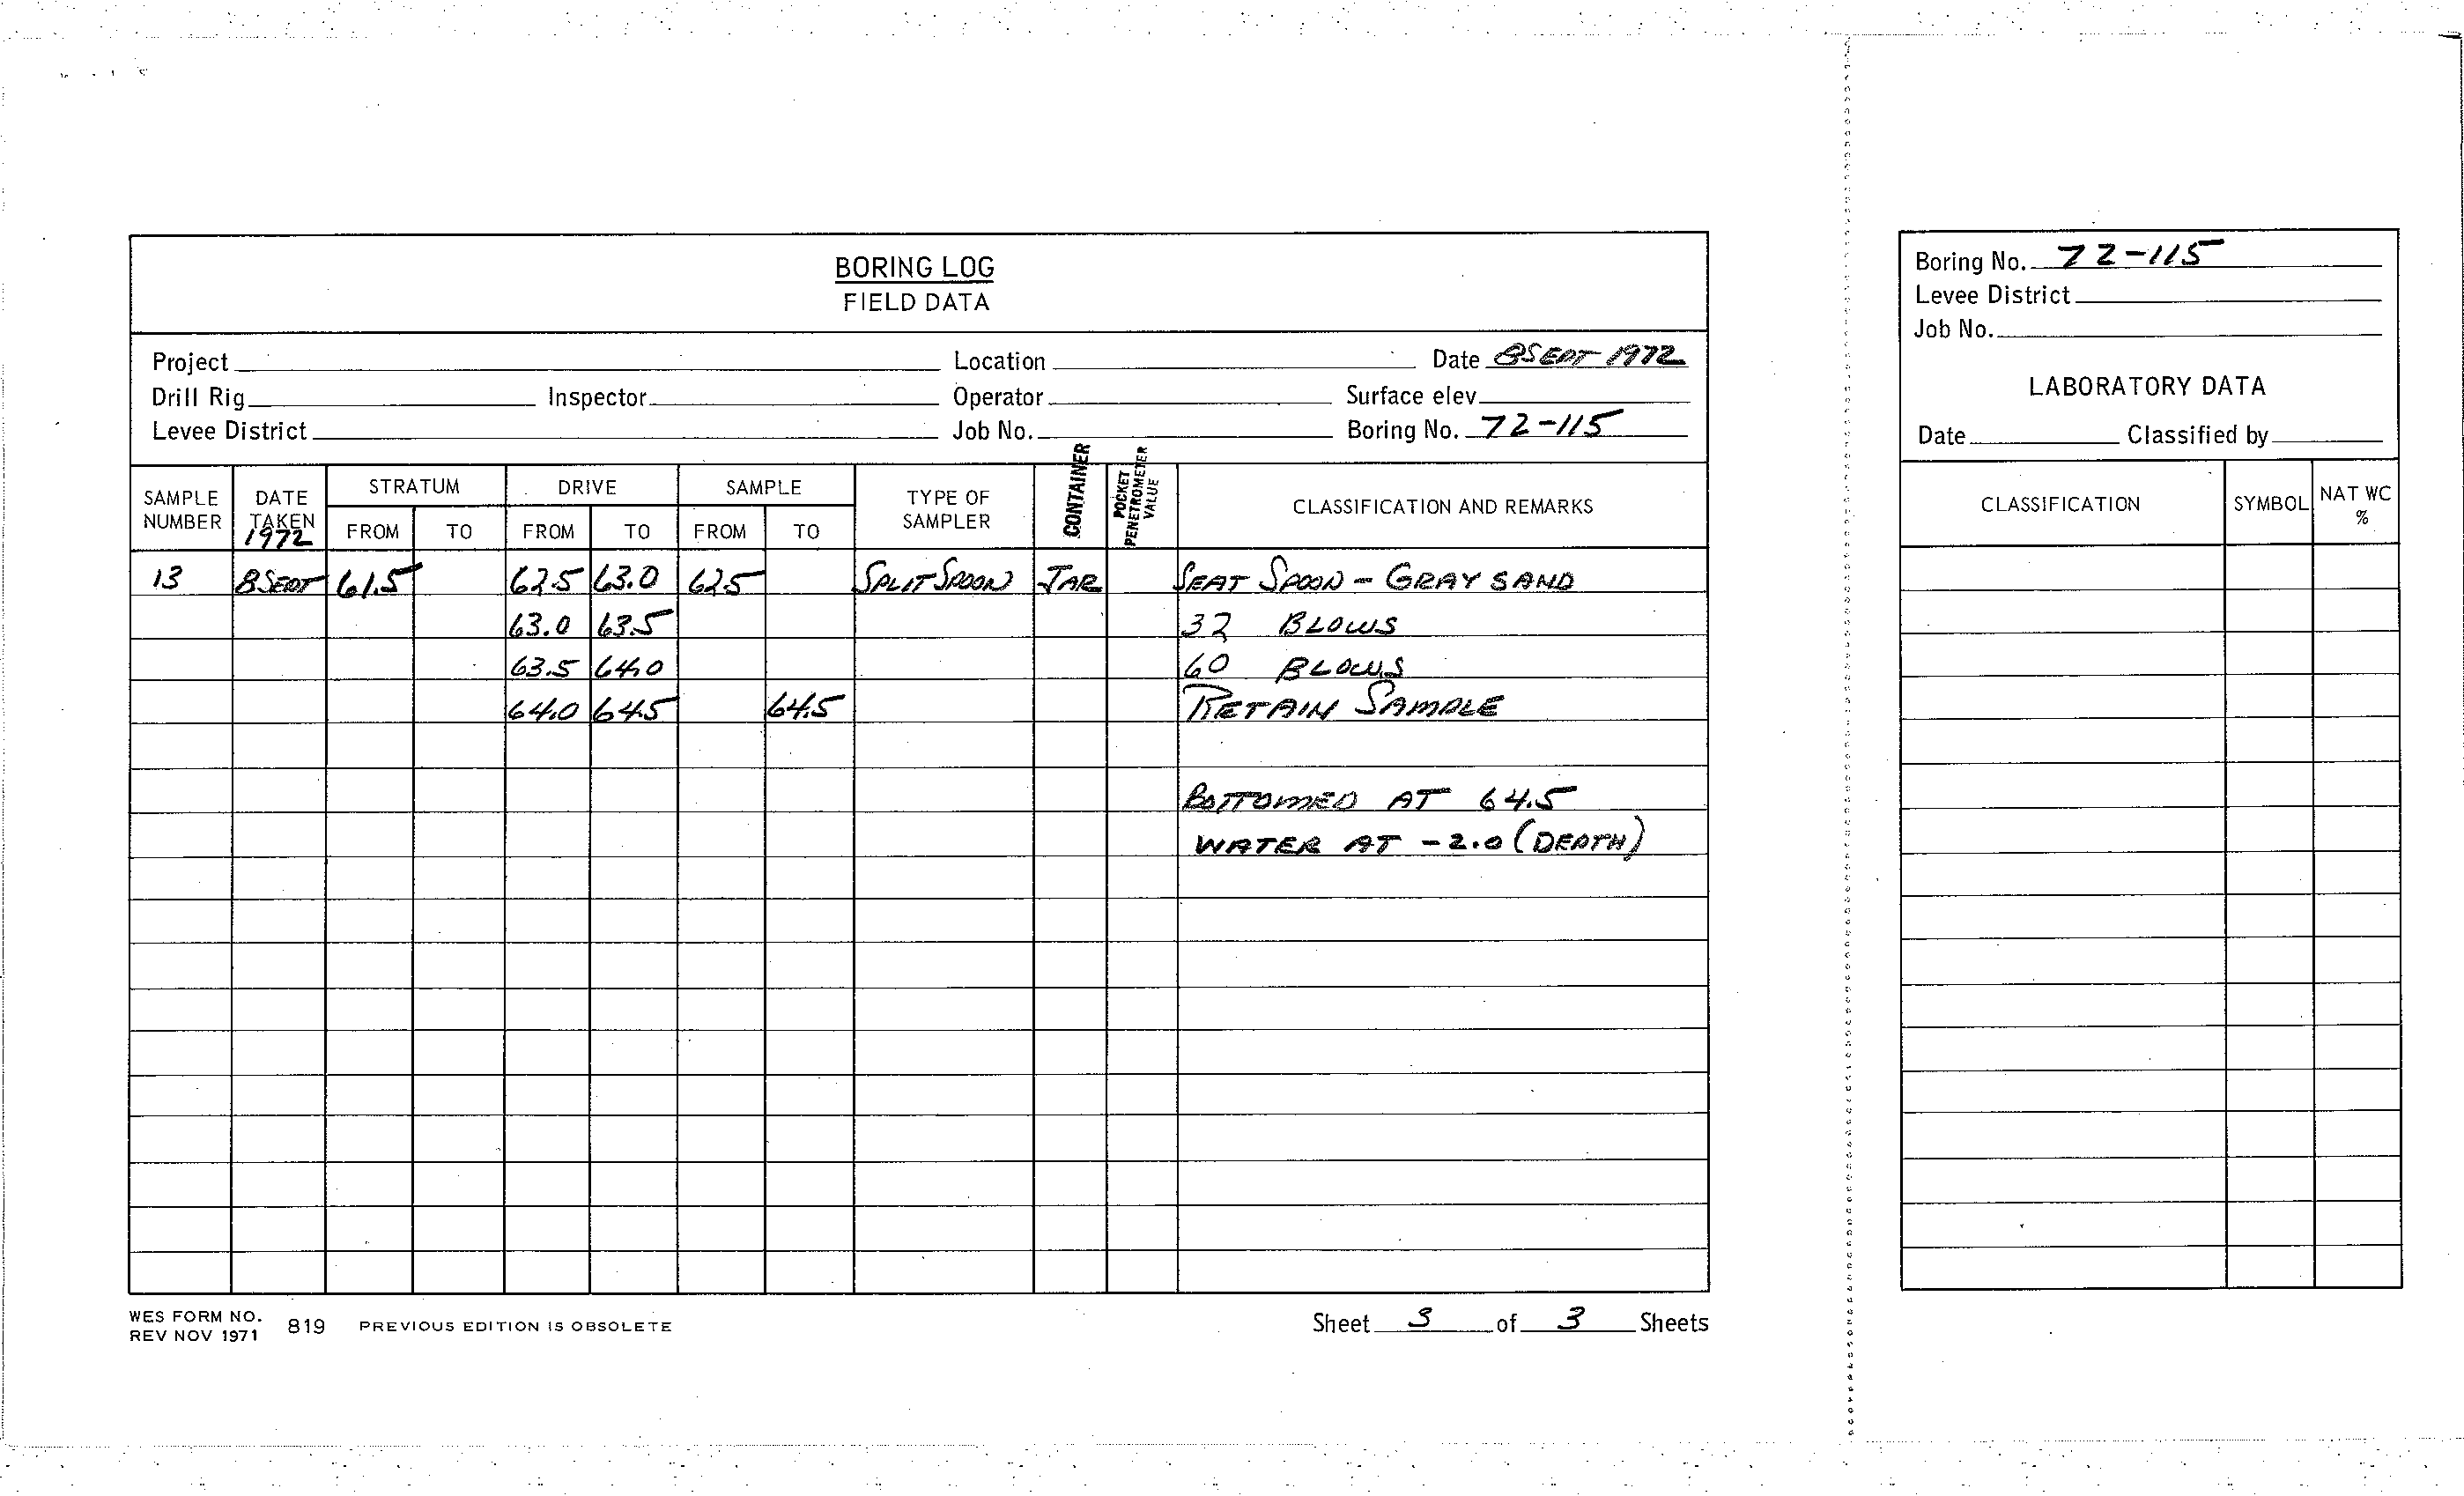 BORING LOG
FIELD DATA
Project Location Date 8 SEPT 1972
Drill Rig Inspector Operator Surface elev.
Levee District Job No. Boring No. 72-115
SAMPLE NUMBER DATE TAKEN 1972 STRATUM DRIVE SAMPLE TYPE OF SAMPLER CONTAINER POCKET PENETROMETER VALUE CLASSIFICATION AND REMARKS
FROM TO FROM TO FROM TO
13 8 SEPT 61.5 62.5 63.0 62.5 SPLIT SPOON JAR SEAT SPOON - GRAY SAND
63.0 63.5 32 BLOWS
63.5 64.0 60 BLOWS
64.0 64.5 64.5 RETAIN SAMPLE
BOTTOMED AT 64.5
WATER AT -2.0 (DEPTH)
WES FORM NO. 819 PREVIOUS EDITION IS OBSOLETE
REV NOV 1971
Sheet 3 of 3 Sheets
Boring No. 72-115
Levee District
Job No.
LABORATORY DATA
Date Classified by
CLASSIFICATION SYMBOL NAT WC %